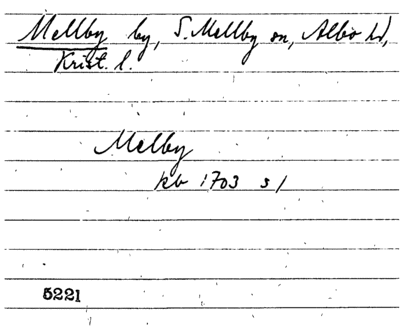 Mellby by, S. Mellby sn, Albo hd,
Krist. l.
Melby
kb 1703 s 1
5221